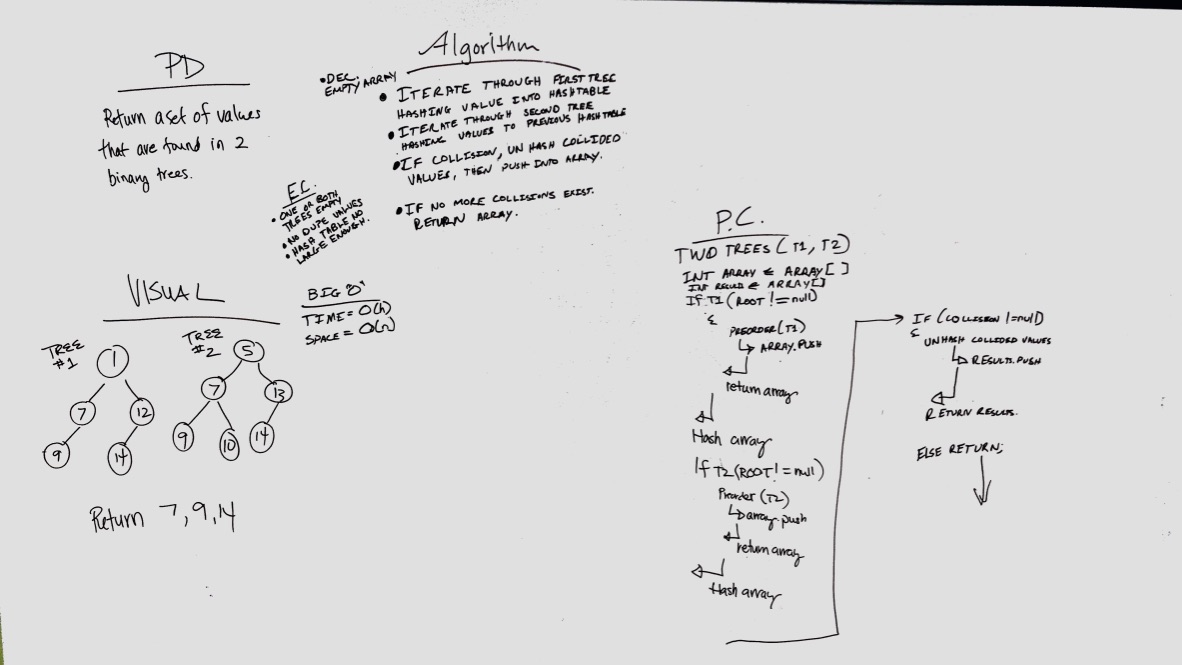 PD
Return a set of values
that are found in 2
binary trees.
Algorithm
• DEC.
EMPTY ARRAY
• ITERATE THROUGH FIRST TREE
HASHING VALUE INTO HASHTABLE
• ITERATE THROUGH SECOND TREE
HASHING VALUES TO PREVIOUS HASHTABLE
• IF COLLISION, UNHASH COLLIDED
VALUES, THEN PUSH INTO ARRAY.
• IF NO MORE COLLISIONS EXIST.
RETURN ARRAY.
E.C.
• ONE OR BOTH
TREES EMPTY
• NO DUPE VALUES
• HASH TABLE NO
LARGE ENOUGH.
VISUAL
TREE
#1
1
7
12
9
14
TREE
#2
5
7
13
9
10
14
Return 7, 9, 14
BIG O
TIME = O(h)
SPACE = O(n)
P.C.
TWO TREES (T1, T2)
INT ARRAY ← ARRAY[ ]
INT ← ARRAY[]
If T1 (ROOT != null)
{
PREORDER (T1)
↳ ARRAY.PUSH
return array
Hash array
If T2 (ROOT != null)
Preorder (T2)
↳ array.push
return array
Hash array
IF (COLLISION != null)
{
UNHASH COLLIDED VALUES
↳ RESULTS.PUSH
RETURN RESULTS.
ELSE RETURN;